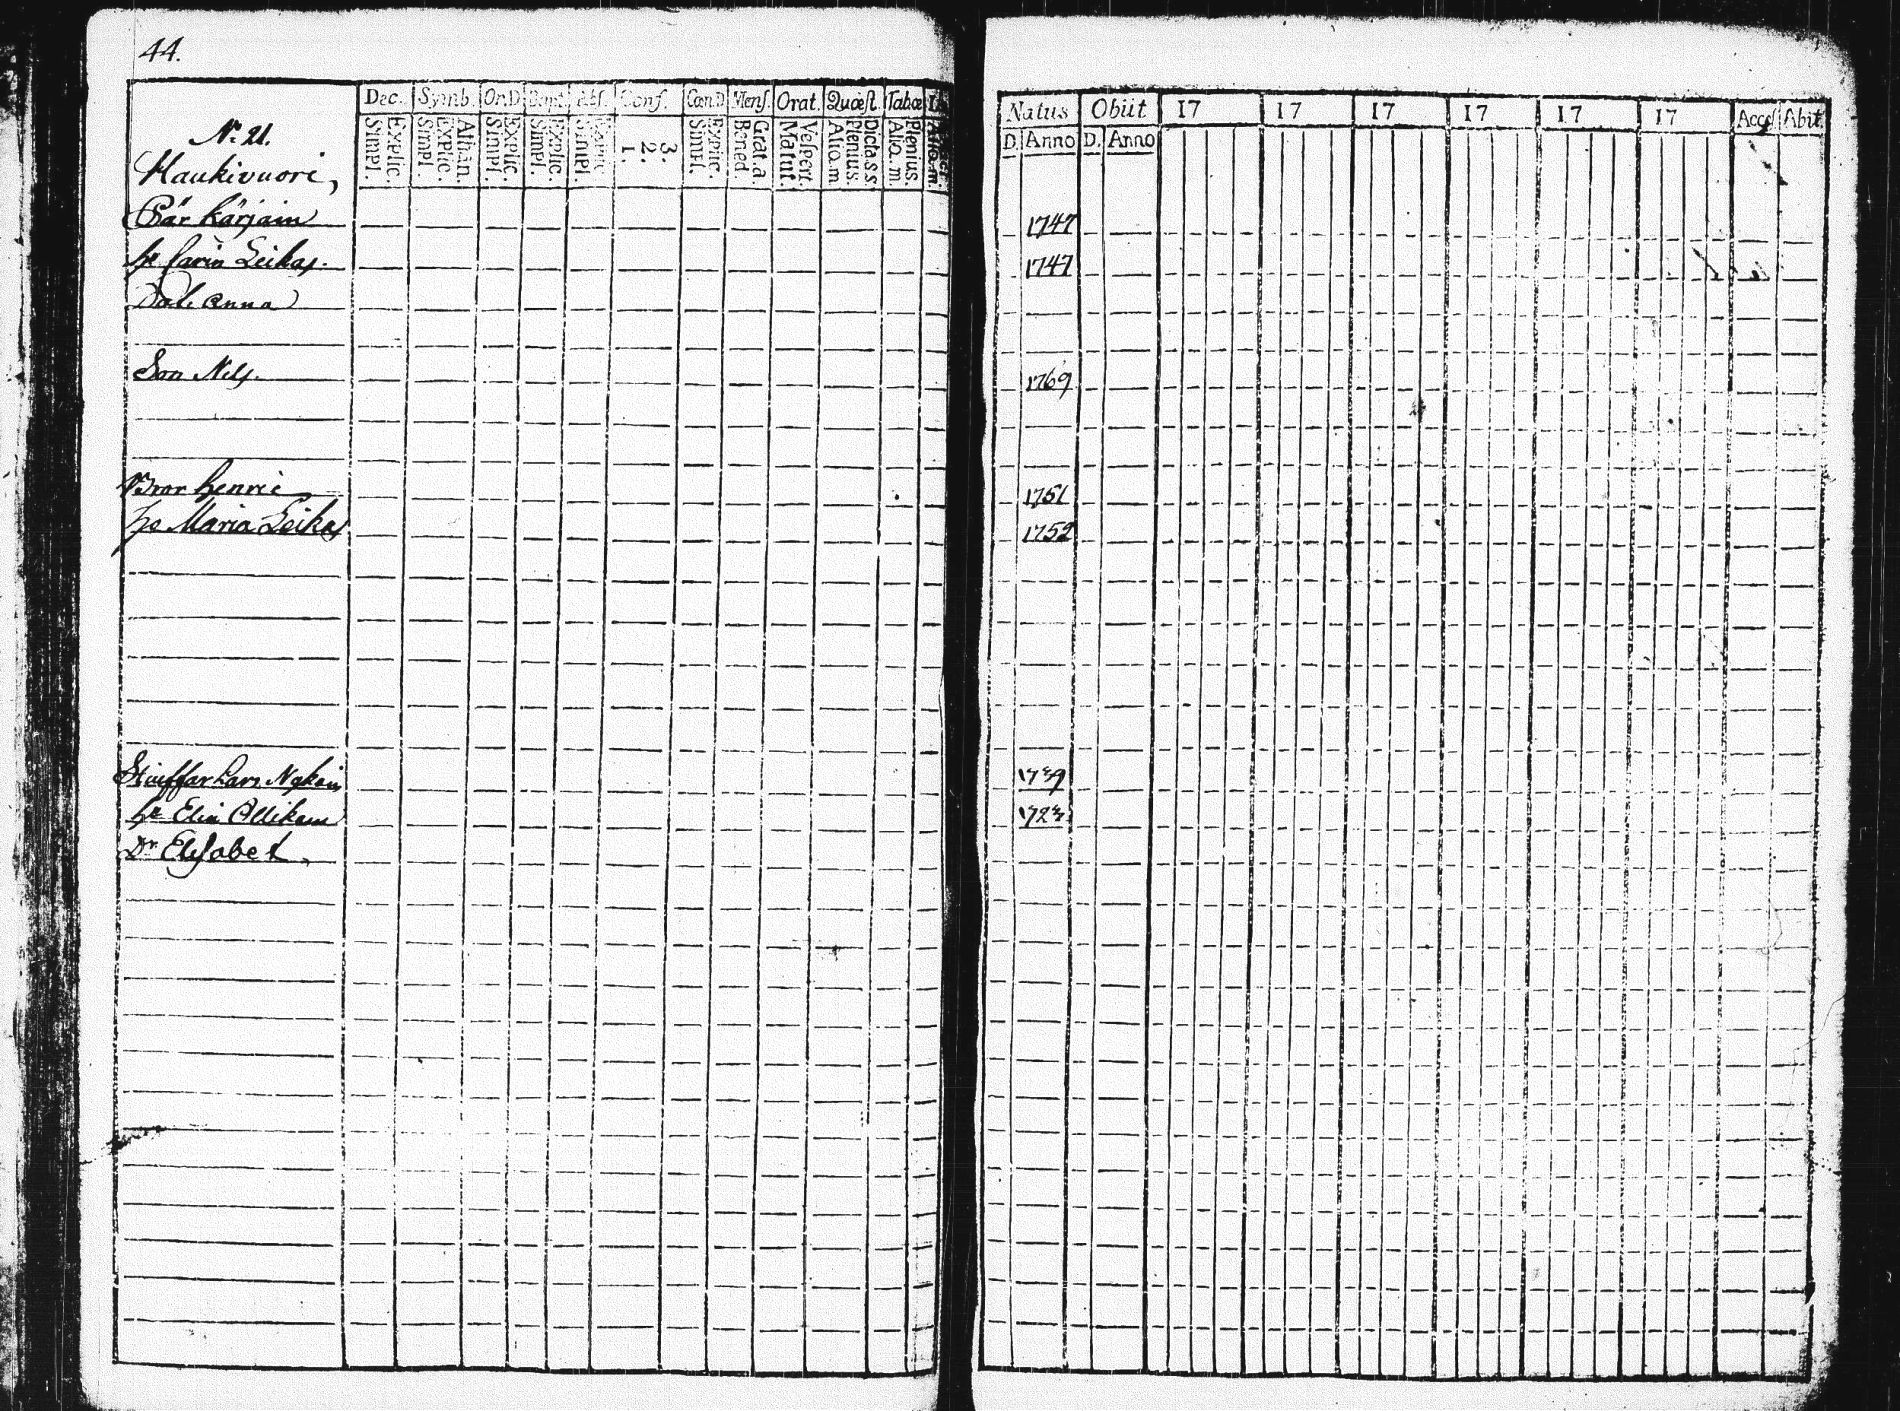 44.
Dec. Symb. Or.D. Bapt. Abs. Conf. Cœn.D. Mens. Orat. Quæst. Tabæ
Simpl. Explic. Simpl. Explic. Athan. Simpl. Explic. Simpl. Explic. Simpl. Explic. 1. 2. 3. Simpl. Explic. Bened Grat. a. Matut. Vespert. Alio. m Plenius. Dicta s s. Alio. m Plenius.
Natus Obiit 17 17 17 17 17 17 Acces Abit
D. Anno D. Anno
N. 21.
Haukivuori,
Pär Kärjain 1747
h. Carin Leikas. 1747
Dot. Anna
Son Nils. 1769
Bror Henric 1751
h. Maria Leikas 1752
Stiuffar Lars Nykain 1739
h. Elin Ollikain 1723
Dr Elisabet,